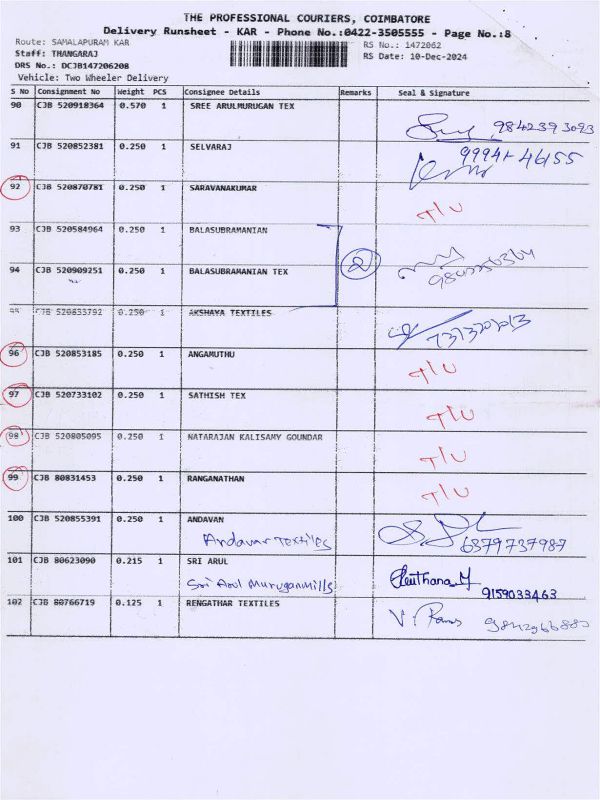 THE PROFESSIONAL COURIERS, COIMBATORE
Delivery Runsheet - KAR - Phone No.:0422-3505555 - Page No.:8
Route: SAMALAPURAM KAR
RS No.: 1472062
Staff: THANGARAJ
RS Date: 10-Dec-2024
DRS No.: DCJB147206208
Vehicle: Two Wheeler Delivery
S No Consignment No Weight PCS Consignee Details Remarks Seal & Signature
90 CJB 520918364 0.570 1 SREE ARULMURUGAN TEX
9842393093
91 CJB 520852381 0.250 1 SELVARAJ
92 CJB 520870781 0.250 1 SARAVANAKUMAR
T/U
93 CJB 520584964 0.250 1 BALASUBRAMANIAN
2
94 CJB 520909251 0.250 1 BALASUBRAMANIAN TEX
95 CJB 520833792 0.250 1 AKSHAYA TEXTILES
96 CJB 520853185 0.250 1 ANGAMUTHU
T/U
97 CJB 520733102 0.250 1 SATHISH TEX
T/U
98 CJB 520805095 0.250 1 NATARAJAN KALISAMY GOUNDAR
T/U
99 CJB 80831453 0.250 1 RANGANATHAN
T/U
100 CJB 520855391 0.250 1 ANDAVAN
Andavar Textiles
6379737987
101 CJB 80623090 0.215 1 SRI ARUL
Sri Arul Murugan Mills
9159033463
102 CJB 80766719 0.125 1 RENGATHAR TEXTILES